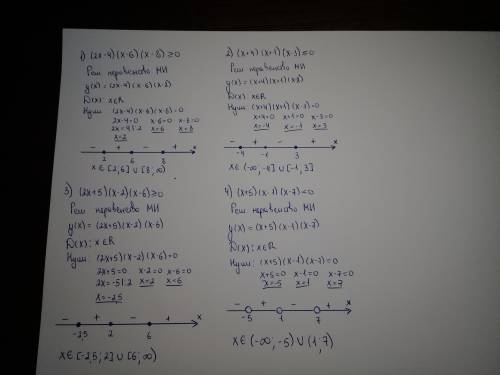 1) (2x-4)(x-6)(x-8)≥0
Реш. неравенство МИ
y(x)=(2x-4)(x-6)(x-8)
D(x): x∈R
Нули: (2x-4)(x-6)(x-8)=0
2x-4=0 x-6=0 x-8=0
2x=4|:2 x=6 x=8
x=2
- + - + x
2 6 8
x∈[2;6]∪[8;∞)
2) (x+4)(x+1)(x-3)≤0
Реш неравенство МИ
y(x)=(x+4)(x+1)(x-3)
D(x): x∈R
Нули: (x+4)(x+1)(x-3)=0
x+4=0 x+1=0 x-3=0
x=-4 x=-1 x=3
- + - + x
-4 -1 3
x∈(-∞;-4]∪[-1;3]
3) (2x+5)(x-2)(x-6)≥0
Реш неравенство МИ
y(x)=(2x+5)(x-2)(x-6)
D(x): x∈R
Нули: (2x+5)(x-2)(x-6)=0
2x+5=0 x-2=0 x-6=0
2x=-5|:2 x=2 x=6
x=-2,5
- + - + x
-2,5 2 6
x∈[-2,5;2]∪[6;∞)
4) (x+5)(x-1)(x-7)<0
Реш неравенство МИ
y(x)=(x+5)(x-1)(x-7)
D(x): x∈R
Нули: (x+5)(x-1)(x-7)=0
x+5=0 x-1=0 x-7=0
x=-5 x=1 x=7
- + - + x
-5 1 7
x∈(-∞;-5)∪(1;7)